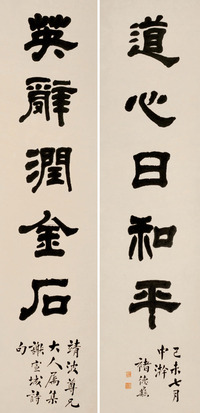 道心日和平
己未七月
中澣
褚德彝
英辭潤金石
靖波尊兄
大人屬集
謝宣城詩
句